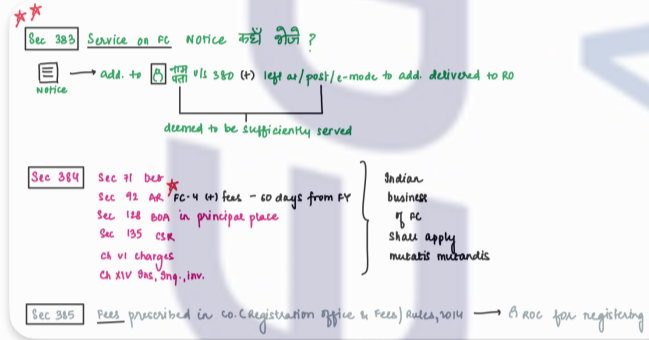 Sec 383 Service on FC Notice कहाँ भेजे ?
Notice → add. to नाम पता u/s 380 (+) left at/post/e-mode to add. delivered to RO
deemed to be sufficiently served
Sec 384 Sec 71 Deb
Sec 92 AR FC-4 (+) fees - 60 days from FY
Sec 128 BOA in principal place
Sec 135 CSR
Ch VI charges
Ch XIV Ins, Inq., inv.
Indian
business
of FC
Shall apply
mutatis mutandis
Sec 385 Fees prescribed in co. (Registration office & Fees) Rules, 2014 → ROC for registering